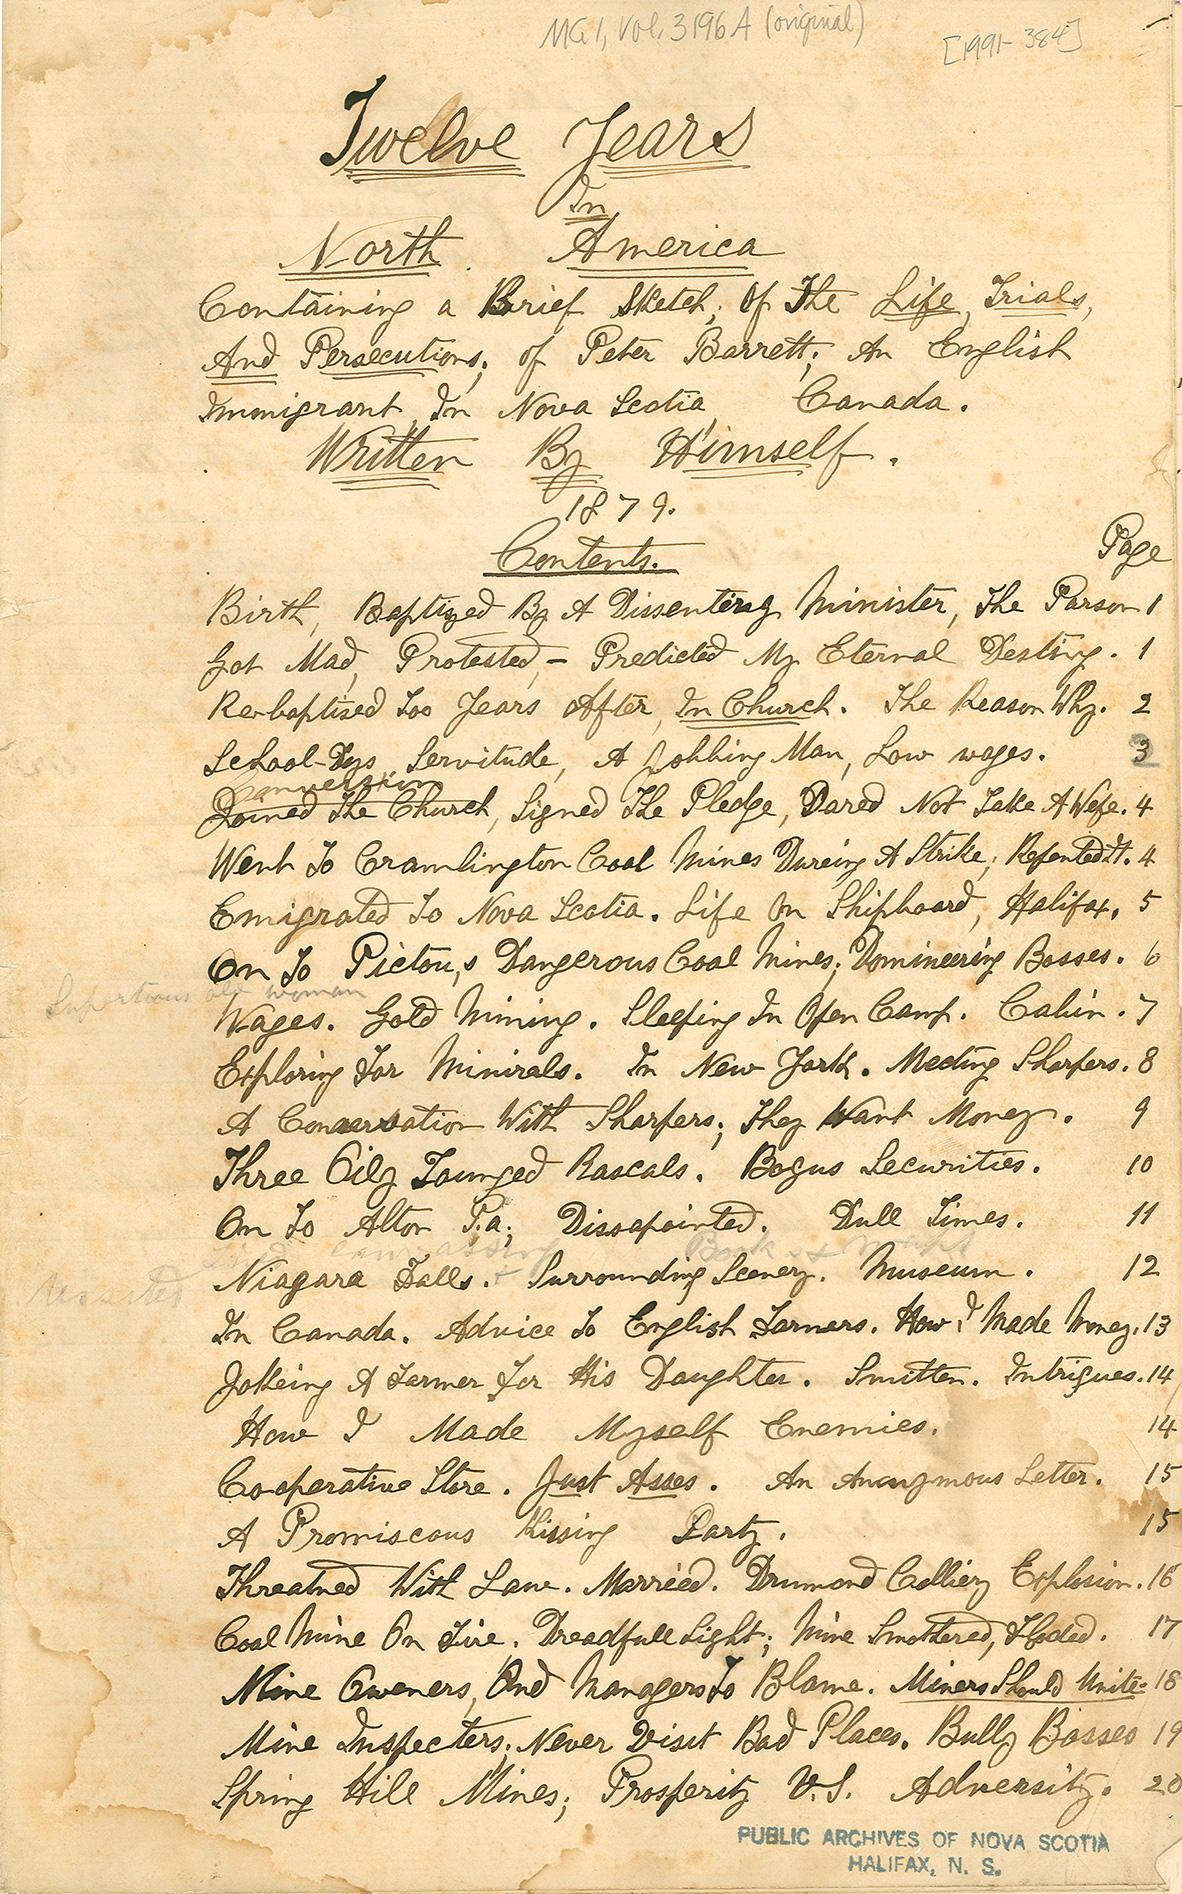 MG1, Vol. 3196A (original)
[1991-384]
Twelve Years
In
North America
Containing a Brief Sketch, Of The Life, Trials,
And Persecutions, of Peter Barrett; An English
Immigrant, In Nova Scotia Canada.
Written By Himself.
1879.
Contents.
Page
Birth, Baptized By A Dissenting Minister, The Parson 1
Got Mad, Protested, - Predicted My Eternal Destiny. 1
Re-baptised Too Years After, In Church. The Reason Why. 2
School-Dys Servitude, A Jobbing Man, Low wages. 3
Conversion
Joined The Church, Signed The Pledge, Dared Not Take A Wife. 4
Went To Cramlington Coal Mines Dureing A Strike, Repented It. 4
Emigrated To Nova Scotia. Life On Shipboard, Halifax. 5
On To Pictou,s Dangerous Coal Mines; Domineering Bosses. 6
old woman
Wages. Gold Mining. Sleeping In Open Camp. Cabin. 7
Exploring For Minirals. In New York. Meeting Sharpers. 8
A Conversation With Sharpers; They Want Money. 9
Three Oily Tounged Rascals. Bogus Securities. 10
On To Alton P.a; Dissapointed. Dull Times. 11
canvassing Book
Niagara Falls. + Surrounding Scenery. Museum. 12
In Canada. Advice To English Farmers. How I Made Money. 13
Jokeing A Farmer For His Daughter. Smitten. Intrigues. 14
How I Made Myself Enemies. 14
Co-operative Store. Just Asses. An Anonymous Letter. 15
A Promiscous Kissing Party. 15
Threatned With Law. Married. Drumond Colliery Explosion. 16
Coal Mine On Fire. Dreadfull Sight; Mine Smothered, Flooded. 17
Mine Owners, And Managers To Blame. Miners Should Unite. 18
Mine Inspecters, Never Visit Bad Places. Bully Bosses 19
Spring Hill Mines; Prosperity V.S. Adversity. 20
PUBLIC ARCHIVES OF NOVA SCOTIA
HALIFAX, N. S.